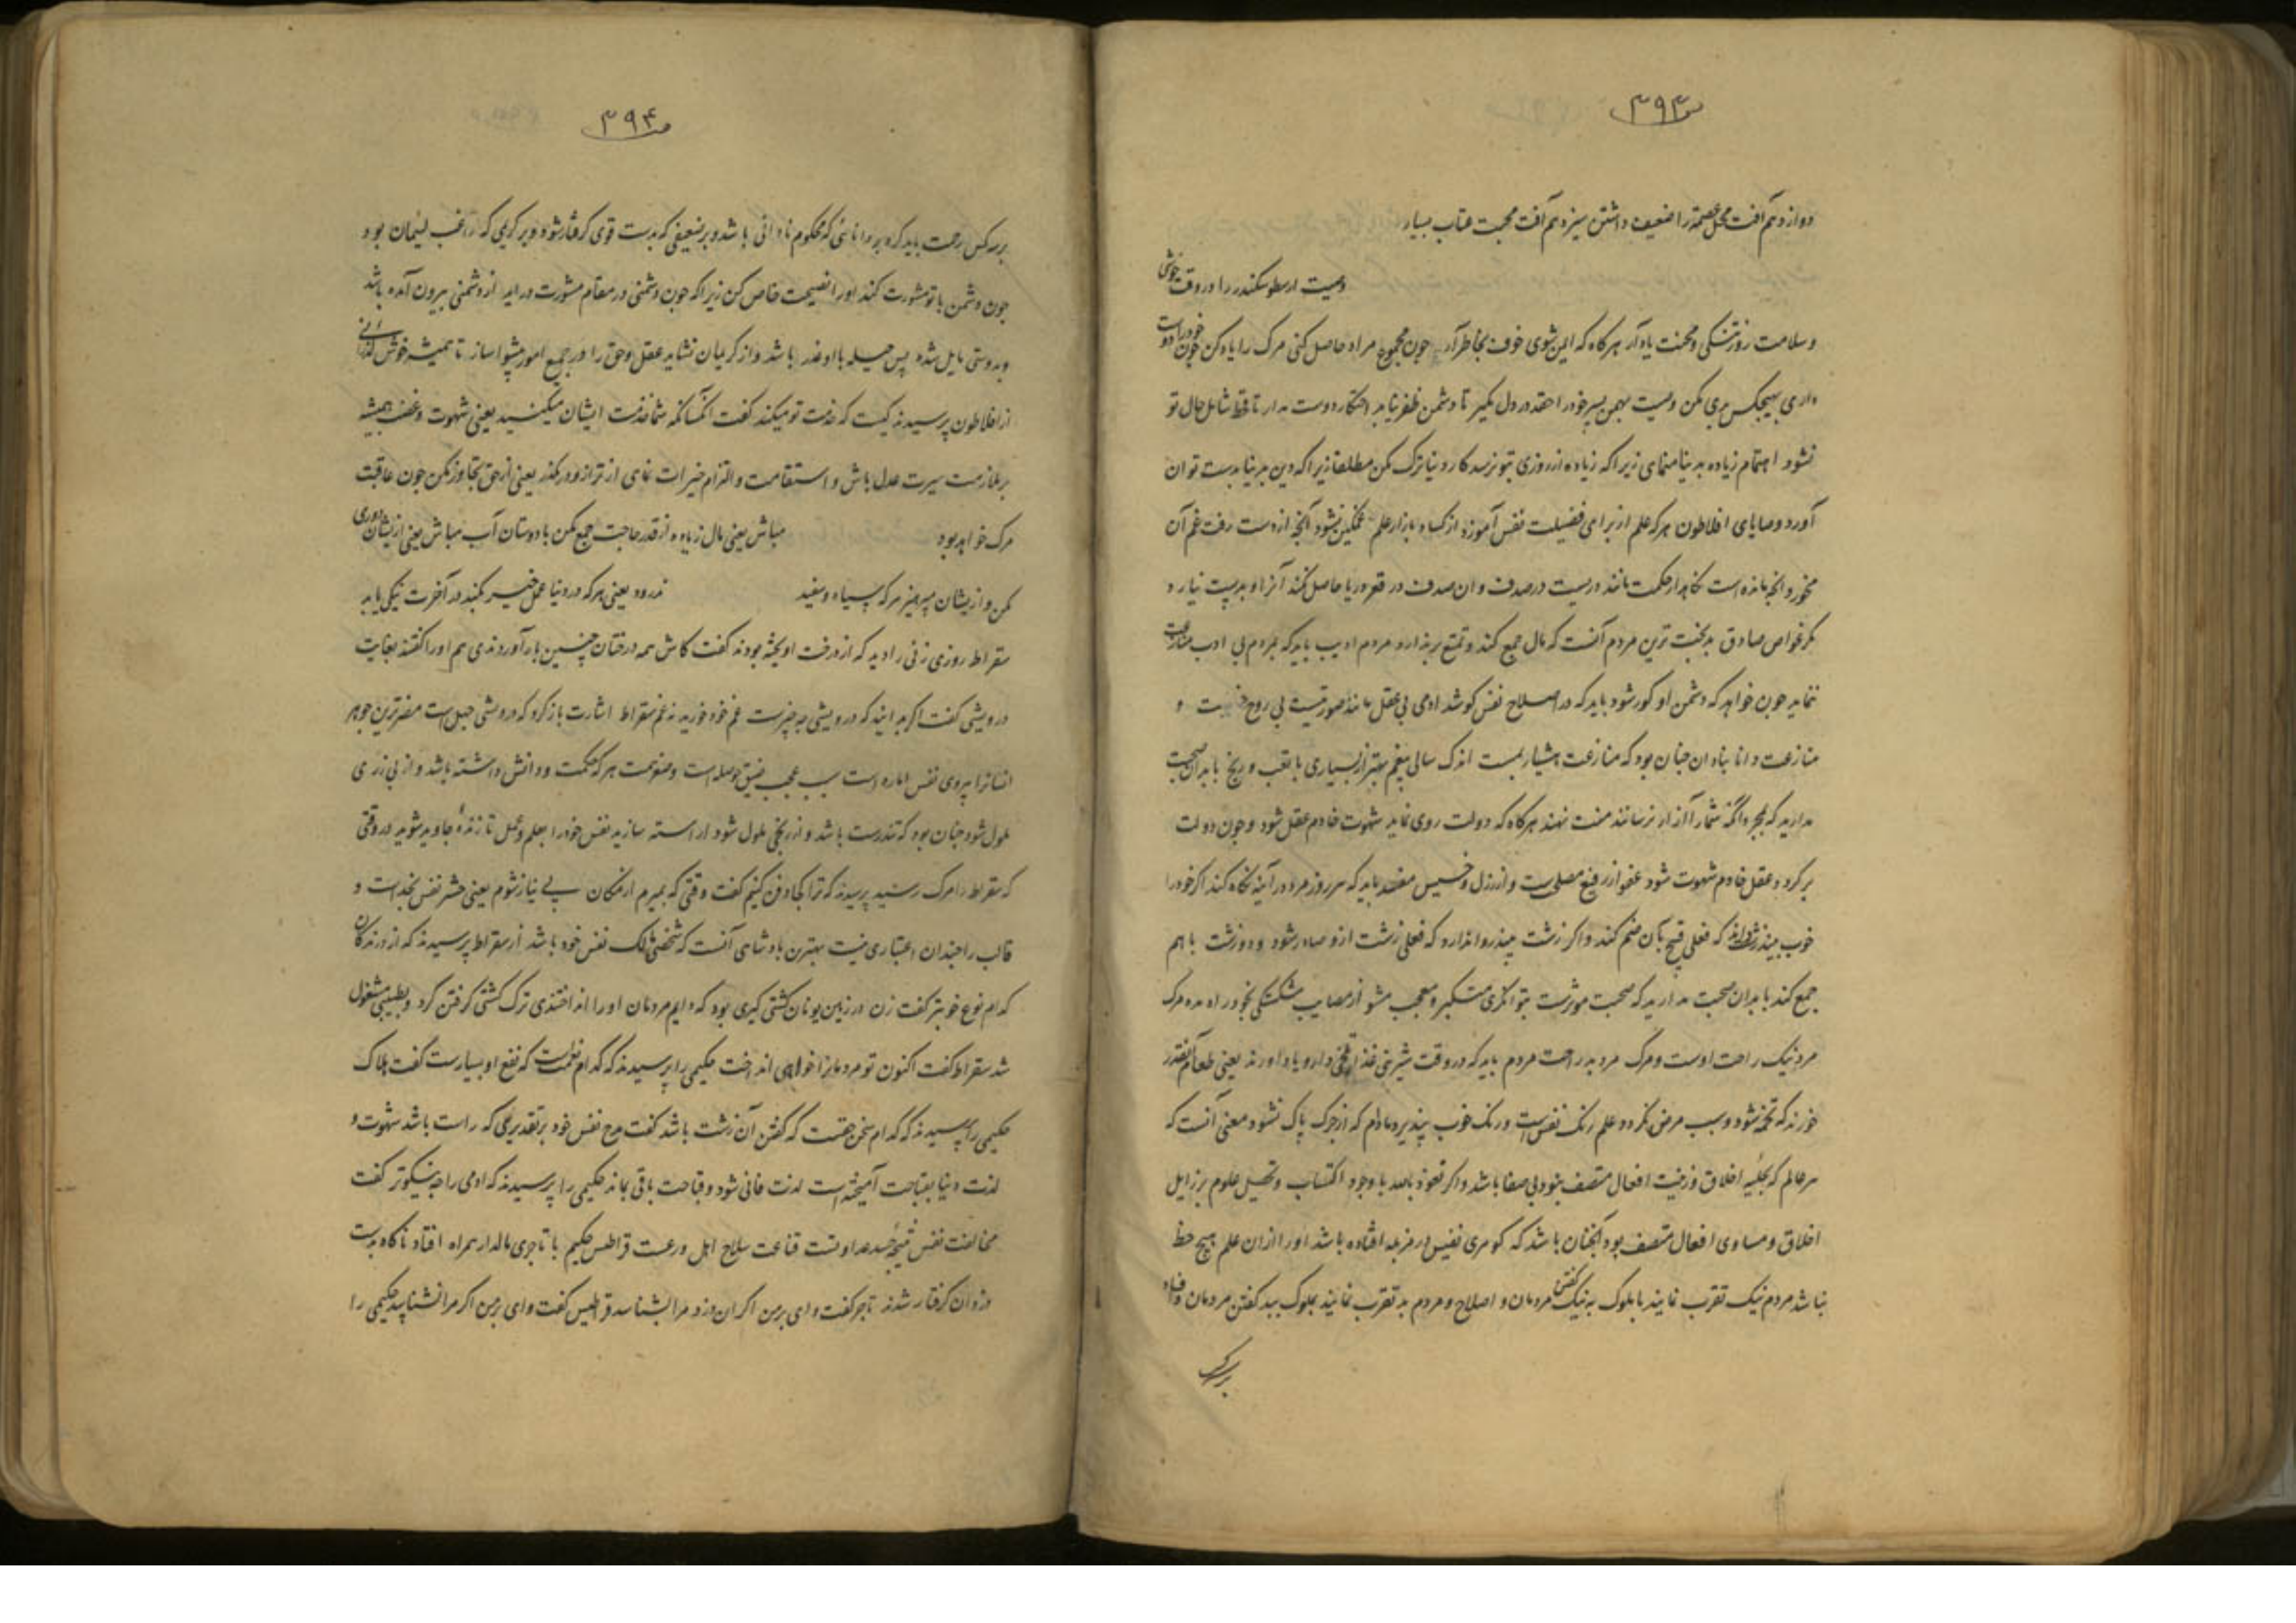 ۳۹۳
دوازدهم آفت محل خصمه را ضعیف داشتن سیزدهم آفت محبت عتاب بسیار
وصیت ارسطو سکندر را در وقت خوشی
و سلامت روز تنگی و محنت یاد آر هرکاه که ایمن شوی خوف بخاطر آر چون مجموع مراد حاصل کنی مرک را یاد کن چون خود را دوست
داری بهیچکس بدی مکن وصیت بهمن پسر خود را حقد در دل مکیر تا دشمن ظفر نیابد احتکار دوست مدار تا قحط شامل حال تو
نشود اهتمام زیاده بدنیا منمای زیرا که زیاده از روزی بتو نرسد کار دنیا ترک مکن مطلقا زیرا که دین بدنیا بدست توان
آورد وصایای افلاطون هرکه علم از برای فضیلت نفس آموزد از کساد بازار علم غمکین نشود آنچه از دست رفت غم آن
مخور و انچه مانده است نکاهدار حکمت مانند دریست در صدف و ان صدف در قعر دریا حاصل کند آنرا و بدست نیارد
مکر غواص صادق بدبخت ترین مردم آنست که مال جمع کند و تمتع برندارد مردم ادیب باید که بمردم بی ادب منازعت
ننماید چون خواهد که دشمن او کور شود باید که در اصلاح نفس کوشد ادمی بی عقل مانند صورتیست بی روح و
منازعت دانا بنادان چنان بود که منازعت هشیار بمست اندک سالی بیغم بهتر از بسیاری با تعب و رنج با بدان صحبت
مدارید که بمجرد انکه شما را آزار نرسانند منت نهند هرکاه که دولت روی نماید شهوت خادم عقل شود و چون دولت
برکردد عقل خادم شهوت شود عفو از رفیع مصلح است و از رذل و خسیس مفسد باید که هر روز مرد در آینه نکاه کند اکر خود را
خوب بیند که فعلی قبیح بآن ضم کند و اکر زشت بیند روا ندارد که فعلی زشت ازو صادر شود و دو زشت با هم
جمع کند با بدان صحبت مدارید که صحبت موثرست بتوانکری متکبر و معجب مشو از مصایب شکستکی بخود راه مده مرک
مرد نیک راحت اوست و مرک مرد بد راحت مردم باید که در وقت شیرینی غذا تلخی دارو یاد اورند یعنی طعام آنقدر
خورند که تخمه نشود و سبب مرض نکردد علم رنک نفس است و رنک خوب نپذیرد مادام که از چرک پاک نشود معنی آنست که
هر عالم که بحلیه اخلاق و زینت افعال متصف نبود بی صفا باشد و اکر نعوذ بالله با وجود اکتساب و تحصیل علوم برذایل
اخلاق و مساوی افعال متصف بود آنچنان باشد که کوهری نفیس در مزبله افتاده باشد او را از ان علم هیچ حظ
نباشد مردم نیک تقرب نمایند بملوک به نیک گفتن مردمان و اصلاح و مردم بد تقرب نمایند بملوک ببد کفتن مردمان و فساد
بر هرکس
۳۹۴
بر سه کس رحمت باید کرد بر دانائی که محکوم نادانی باشد و بر ضعیفی که بدست قوی کرفتار شود و بر کریمی که راغب لئیمان بود
چون دشمن با تو مشورت کند او را نصیحت خاص کن زیرا که چون دشمنی در مقام مشورت دراید از دشمنی بیرون آمده باشد
و بدوستی مایل شده پس حیله با او غدر باشد و از کریمان نشاید عقل و حق را در جمیع امور پیشوا ساز تا همیشه خوش گذرانی
از افلاطون پرسیدند کیست که خدمت تو میکند کفت انکسانکه شما خدمت ایشان میکنید یعنی شهوت و غضب همیشه
بر ملازمت سیرت عدل باش و استقامت و التزام خیرات نمای از ترازو در مکذر یعنی از حق تجاوز مکن چون عاقبت
مرک خواهد بود مباش یعنی مال زیاده از قدر حاجت جمع مکن با دوستان آب مباش یعنی ازیشان دوری
مکن و ازیشان مپرهیز هرکه سیاه و سفید درود یعنی هرکه در دنیا عمل خیر بکند در آخرت نیکی یابد
سقراط روزی زنی را دید که از درخت اویخته بودند کفت کاش همه درختان چنین بار آوردندی هم او را کفتند بغایت
درویشی کفت اکر بدانید که درویشی چه چیزست غم خود خورید نه غم سقراط اشارت باز کرد که درویشی جهل است مضرترین جوهر
انسانرا پیروی نفس اماره است سبب عجب ضیق حوصله است و ضخامت هرکه حکمت و دانش داشته باشد و از بی زری
ملول شود چنان بود که تندرست باشد و از رنجی ملول شود اراسته سازید نفس خود را بعلم و عمل تا زندهٔ جاوید شوید در وقتی
که سقراط را مرک رسید پرسیدند که ترا کجا دفن کنیم کفت وقتی که بمیرم از مکان بی نیاز شوم یعنی حشر نفس بخداست و
قالب را چندان اعتباری نیست بهترین پادشاهی آنست که شخص مالک نفس خود باشد از سقراط پرسیدند که از درندکان
کدام نوع خوبتر کفت زن در زمین یونان کشتی کیری بود که دایم مردمان او را انداختندی ترک کشتی کرفتن کرد و بطبیبی مشغول
شد سقراط کفت اکنون تو مردمانرا خواهی انداخت حکیمی را پرسیدند که کدام ظلمست که نفع او بسیارست کفت هلاک
حکیمی را پرسیدند که کدام سخن حقست که کفتن آن زشت باشد کفت مدح نفس خود بر تقدیری که راست باشد شهوت و
لذت دنیا بقباحت آمیخته است لذت فانی شود و قباحت باقی بماند حکیمی را پرسیدند که ادمی را چه نیکوتر کفت
مخالفت نفس نتیجه حسد عداوتست قناعت سلاح اهل ورعست قراطیس حکیم با تاجری مالدار همراه افتاد ناکاه بدست
دزدان کرفتار شدند تاجر کفت وای بر من اکر ان دزد مرا بشناسد قراطیس کفت وای بر من اکر مرا نشناسد حکیمی را